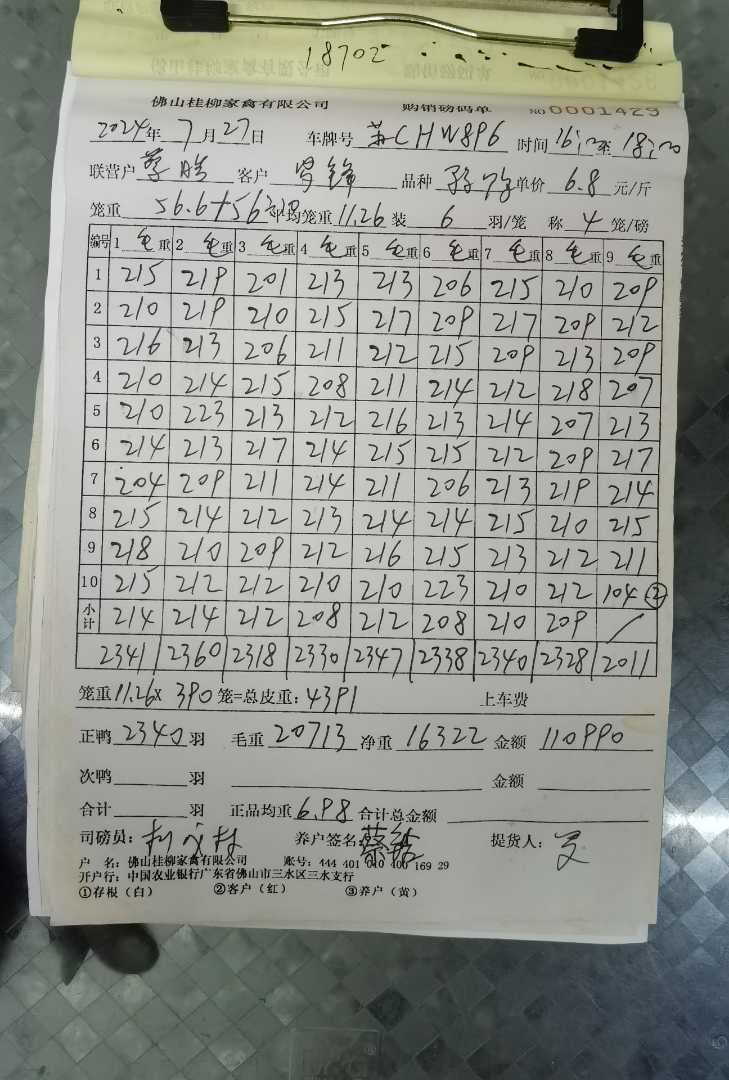 18702
佛山桂柳家禽有限公司 购销磅码单 NO 0001429
2024年 7月 27日 车牌号 苏CHW896 时间 16:00至 18:00
联营户 客户 品种 单价 6.8 元/斤
笼重 56.6+56 平均笼重 11.26 装 6 羽/笼 称 4 笼/磅
编号 1 毛重 2 毛重 3 毛重 4 毛重 5 毛重 6 毛重 7 毛重 8 毛重 9 毛重
1 215 219 201 213 213 206 215 210 209
2 210 219 210 215 217 209 217 209 212
3 216 213 206 211 212 215 209 213 209
4 210 214 215 208 211 214 212 218 207
5 210 223 213 212 216 213 214 207 213
6 214 213 217 214 215 215 212 209 217
7 204 209 211 214 211 206 213 219 214
8 215 214 212 213 214 214 215 210 215
9 218 210 209 212 216 215 213 212 211
10 215 212 212 210 210 223 210 212 104 ②
小计 214 214 212 208 212 208 210 209 /
2341 2360 2318 2330 2347 2338 2340 2328 2011
笼重 11.26 x 390 笼=总皮重: 4391 上车费
正鸭 2340 羽 毛重 20713 净重 16322 金额 110990
次鸭 羽 金额
合计 羽 正品均重 6.98 合计总金额
司磅员: 养户签名: 提货人:
户 名: 佛山桂柳家禽有限公司 账号: 444 401 010 400 169 29
开户行: 中国农业银行广东省佛山市三水区三水支行
①存根(白) ②客户(红) ③养户(黄)